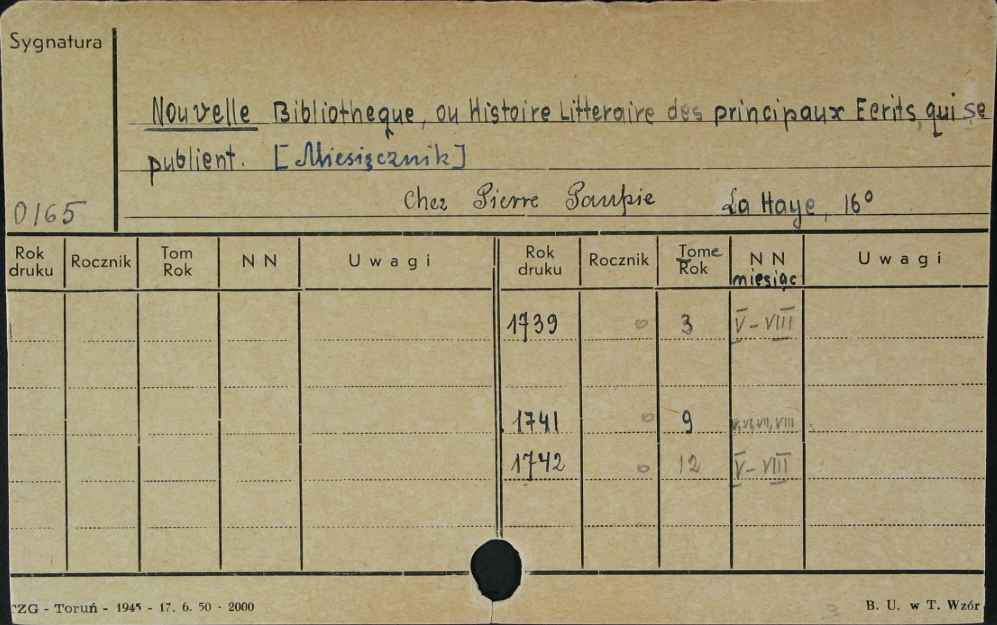 Sygnatura
Nouvelle Bibliotheque, ou Histoire Litteraire des principaux Ecrits, qui se
publient. [Miesięcznik]
0165
Chez Pierre Paupie La Haye, 16°
Rok druku Rocznik Tom Rok N N Uwagi Rok druku Rocznik Tome Rok N N miesiąc Uwagi
1739 0 3 V - VIII
1741 0 9 V, VI, VII, VIII
1742 0 12 V - VIII
ZG - Toruń - 1945 - 17. 6. 50 - 2000
B. U. w T. Wzór